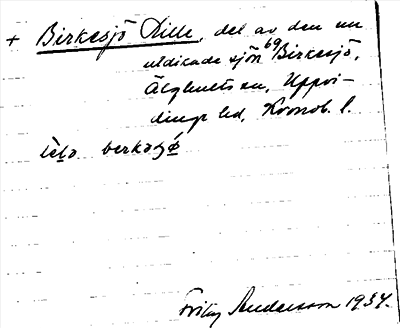 + Birkesjö Lille, del av den nu
utdikade sjön 69 Birkesjö,
Älghults sn, Uppvi-
dinge hd, Kronob. l.
berkaʃø
Fritz Andersson 1934.